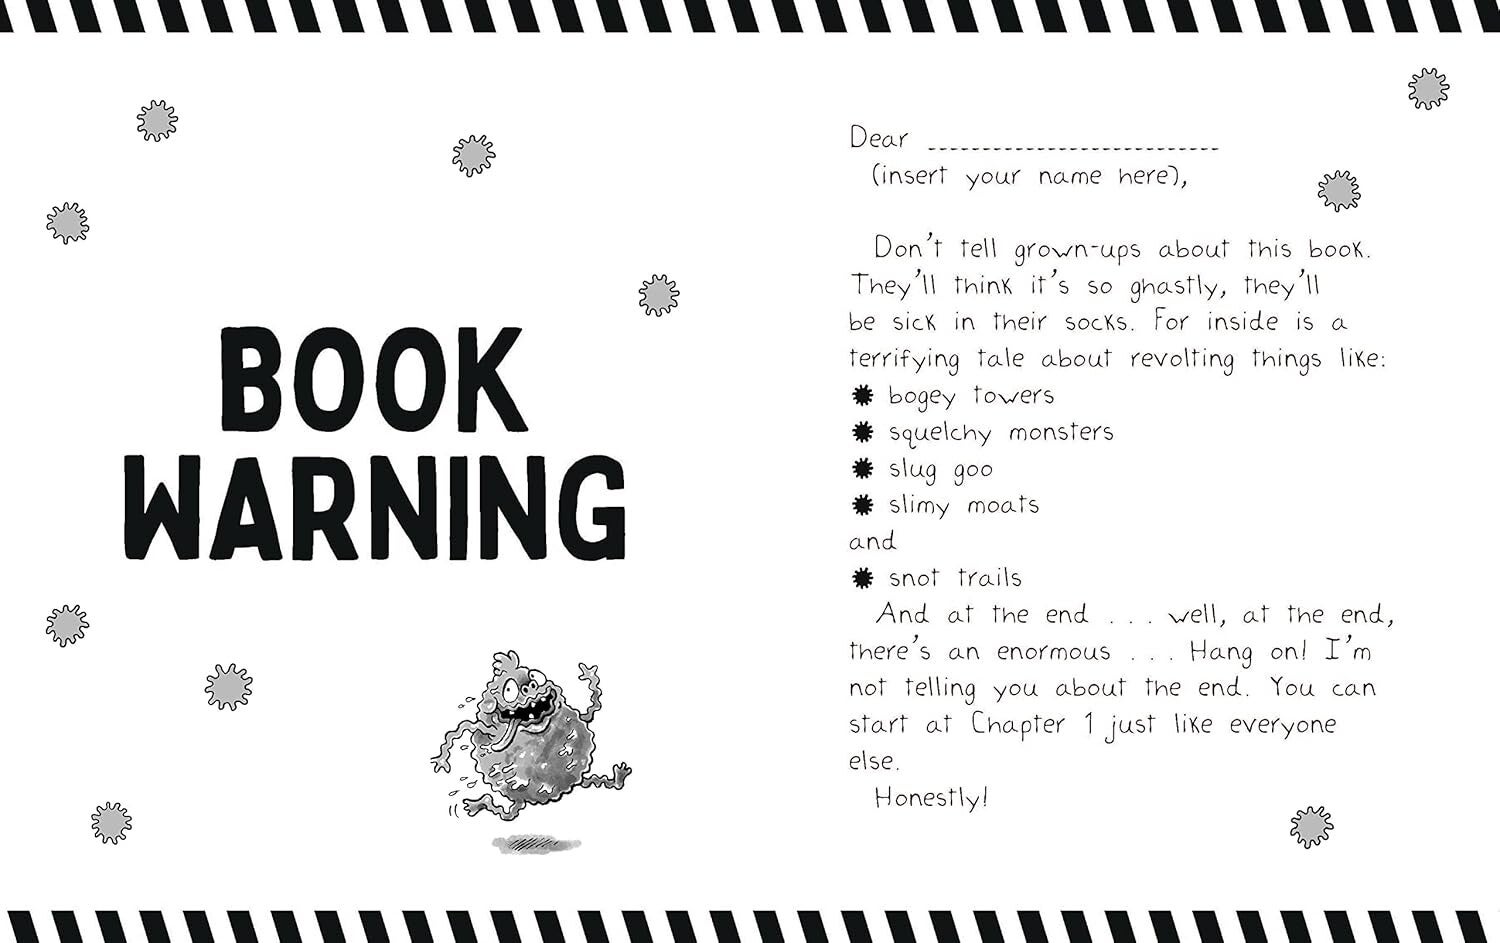 BOOK
WARNING
Dear
(insert your name here),
Don't tell grown-ups about this book.
They'll think it's so ghastly, they'll
be sick in their socks. For inside is a
terrifying tale about revolting things like:
bogey towers
squelchy monsters
slug goo
slimy moats
and
snot trails
And at the end . . . well, at the end,
there's an enormous . . . Hang on! I'm
not telling you about the end. You can
start at Chapter 1 just like everyone
else.
Honestly!